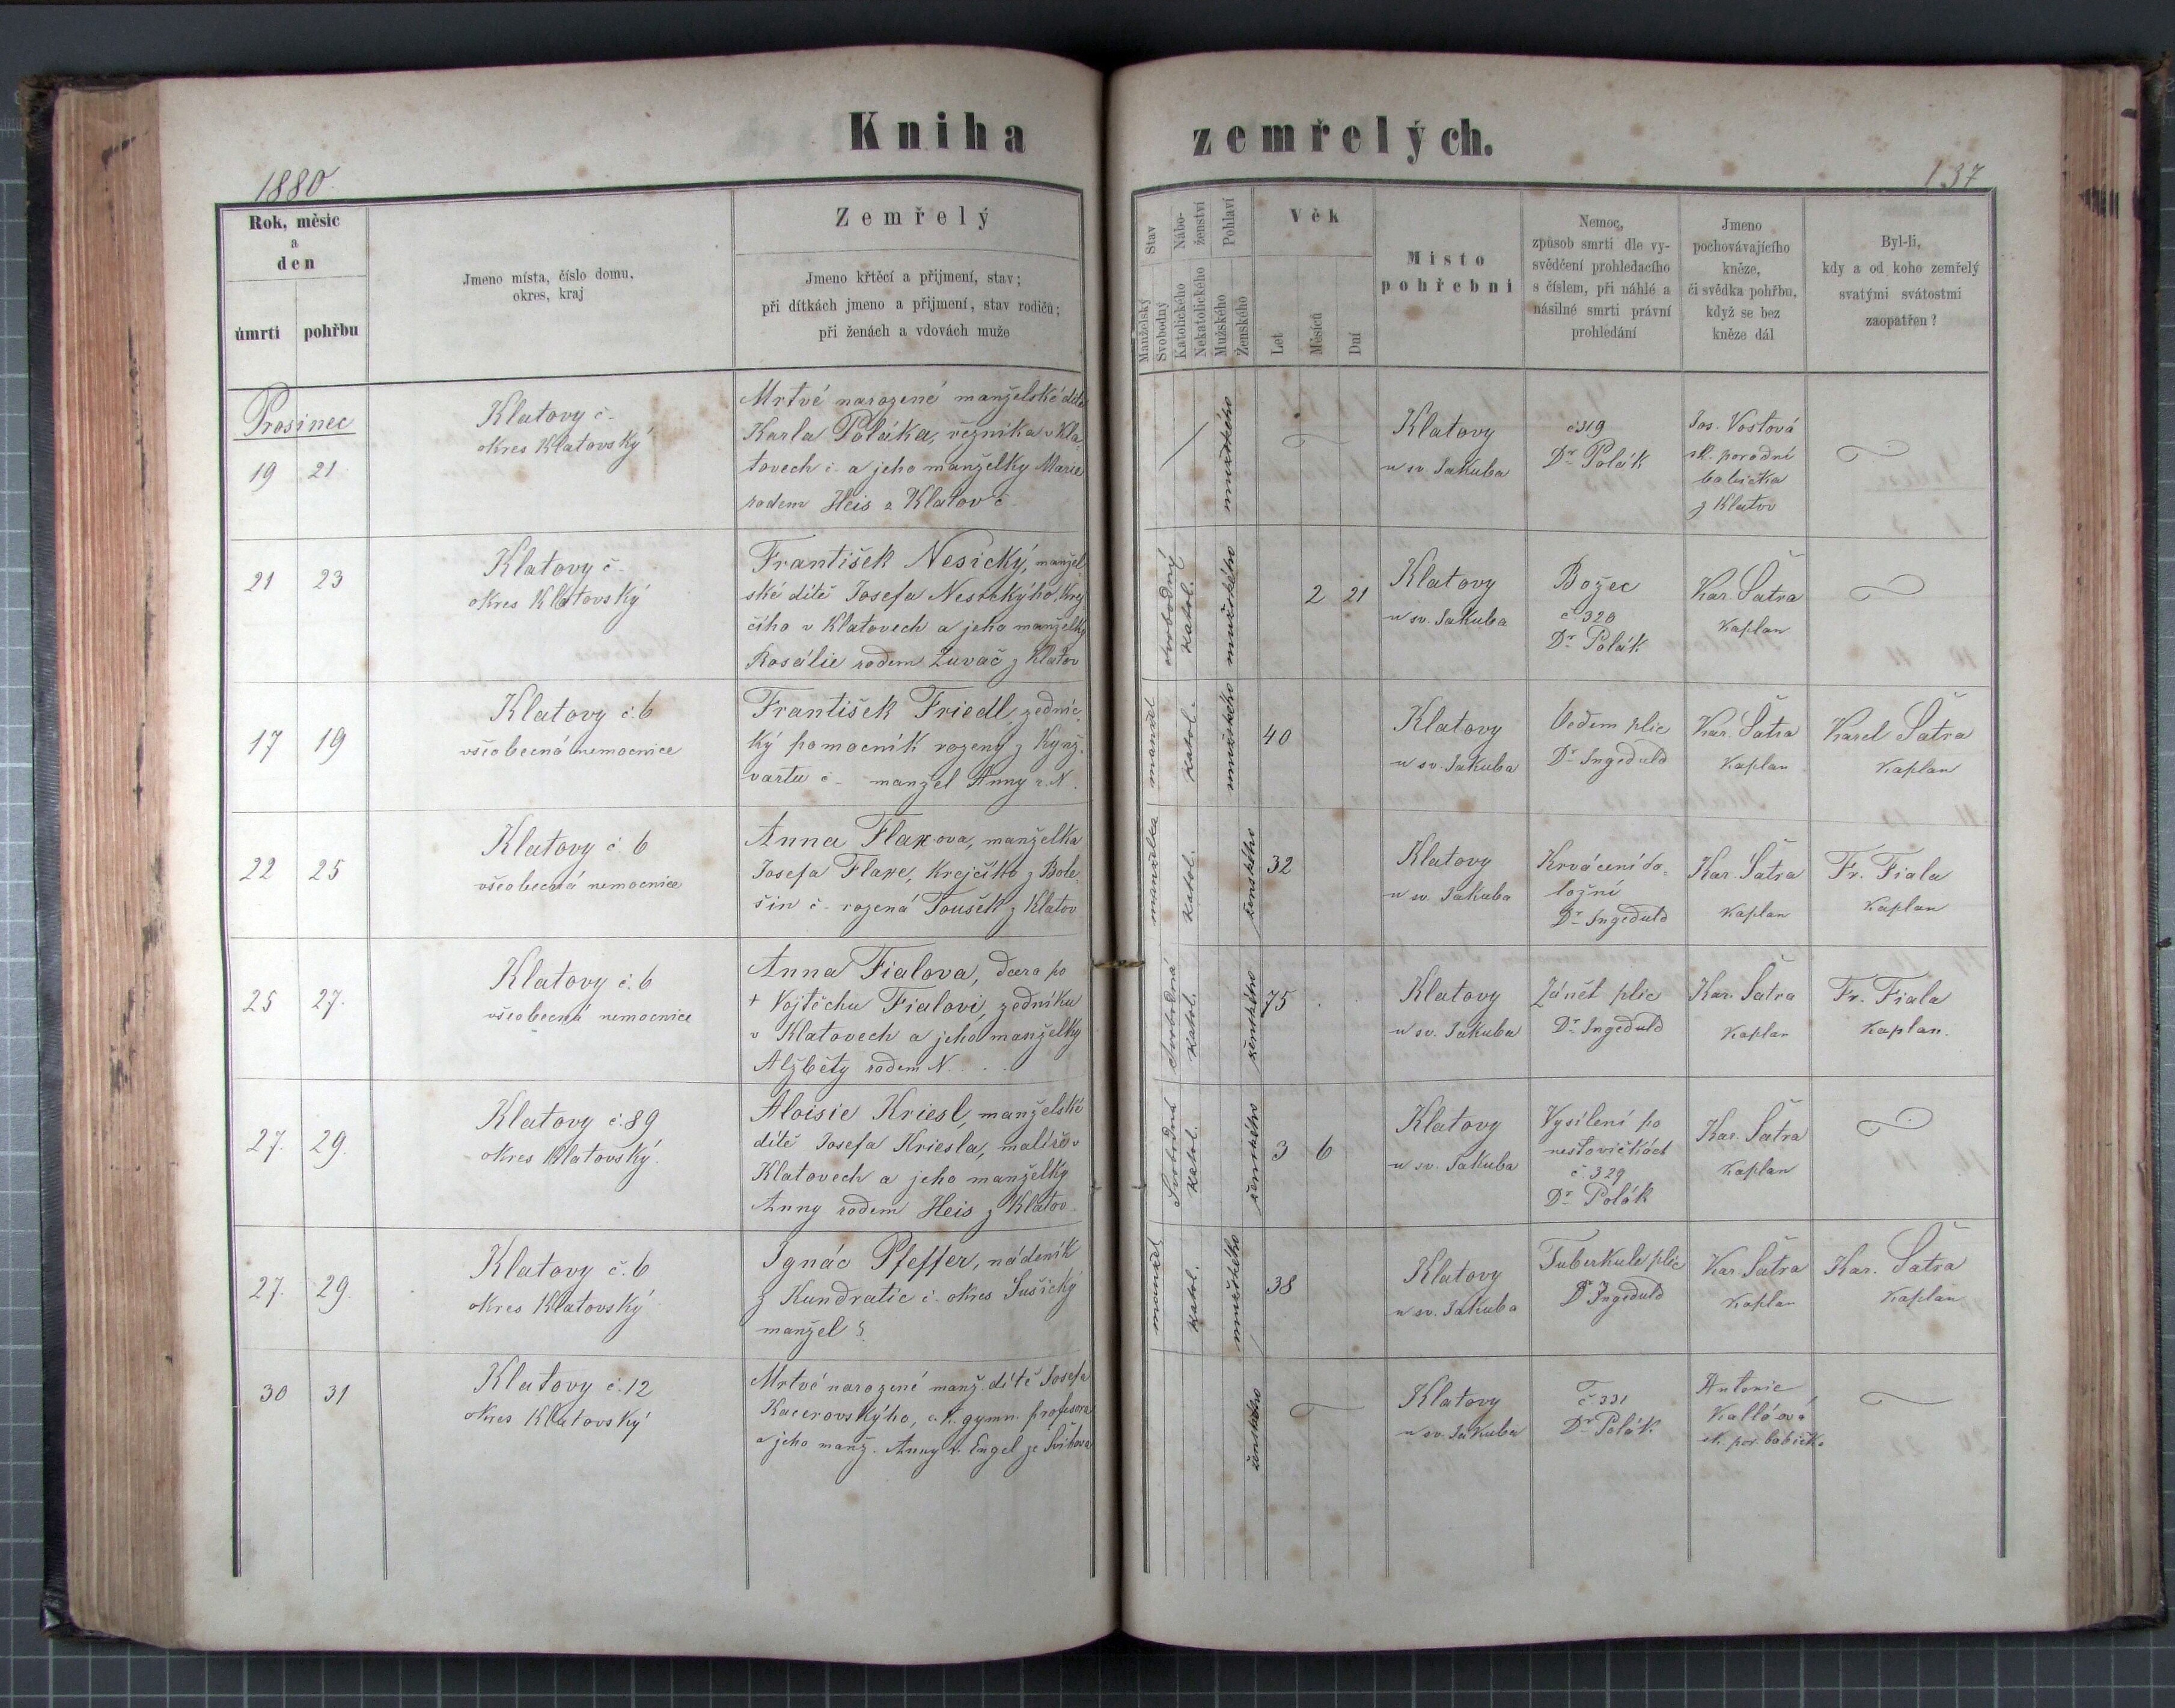 Kniha zemřelých.
1880
137
Rok, měsíc
a
den
úmrtí
pohřbu
Jmeno místa, číslo domu,
okres, kraj
Zemřelý
Jmeno křtěcí a přijmení, stav;
při dítkách jmeno a přijmení, stav rodičů;
při ženách a vdovách muže
Stav
Manželský
Svobodný
Nábo-
ženství
Katolického
Nekatolického
Pohlaví
Mužského
Ženského
Věk
Let
Měsíců
Dní
Místo
pohřební
Nemoc,
způsob smrti dle vy-
svědčení prohledacího
s číslem, při náhlé a
násilné smrti právní
prohledání
Jmeno
pochovávajícího
kněze,
či svědka pohřbu,
když se bez
kněze dál
Byl-li,
kdy a od koho zemřelý
svatými svátostmi
zaopatřen?
Prosinec
19 21
Klatovy č -
okres Klatovský
Mrtvé narozené manželské dítě
Karla Poláka, řezníka v Kla-
tovech č. a jeho manželky Marie
rodem Heis z Klatov č -
mužského
Klatovy
u sv. Jakuba
č 319
Dr Polák
Jos. Vostová
zk. porodní
babička
z Klatov
21 23
Klatovy č -
okres Klatovský
František Nesický, manžel
ské dítě Josefa Nesického, krej
čího v Klatovech a jeho manželky
Rosálie rodem Žuvač z Klatov
svobodný
katol.
mužského
2 21
Klatovy
u sv. Jakuba
Božec
č 320
Dr Polák
Kar. Šatra
kaplan
17 19
Klatovy č. 6
všeobecná nemocnice
František Friedl, zednic-
ký pomocník rozený z Kynž-
vartu č - manžel Anny r. N.
manžel
katol.
mužského
40
Klatovy
u sv. Jakuba
Oedem plic
Dr Ingeduld
Kar. Šatra
kaplan
Karel Šatra
kaplan
22 25
Klatovy č. 6
všeobecná nemocnice
Anna Flaxova, manželka
Josefa Flaxe, krejčího z Bole-
šin č - rozená Toušek z Klatov
manželka
katol.
ženského
32
Klatovy
u sv. Jakuba
Krvácení do-
ložní
Dr Ingeduld
Kar. Šatra
kaplan
Fr. Fiala
kaplan
25 27.
Klatovy č. 6
všeobecná nemocnice
Anna Fialova, dcera po
+ Vojtěchu Fialovi, zedníku
v Klatovech a jeho manželky
Alžběty rodem N. . . .
svobodná
katol.
ženského
75
Klatovy
u sv. Jakuba
Zánět plic
Dr Ingeduld
Kar. Šatra
kaplan
Fr. Fiala
kaplan.
27. 29.
Klatovy č. 89
okres Klatovský.
Aloisie Kriesl, manželské
dítě Josefa Kriesla, malíře v
Klatovech a jeho manželky
Anny rodem Heis z Klatov
Svobodná
katol.
ženského
3 6
Klatovy
u sv. Jakuba
Vysílení po
neštovičkách
č. 329
Dr Polák
Kar. Šatra
kaplan
27. 29.
Klatovy č. 6
okres Klatovský
Ignác Pfeffer, nádeník
z Kundratic č. okres Sušický
manžel
manžel
katol.
mužského
38
Klatovy
u sv. Jakuba
Tuberkule plic
Dr Ingeduld
Kar. Šatra
kaplan
Kar. Šatra
kaplan
30 31
Klatovy č. 12
okres Klatovský
Mrtvé narozené manž. dítě Josefa
Kacerovskýho, c. k. gymn. profesora
a jeho manž. Anny r. Engel ze Švihova
ženského
Klatovy
u sv. Jakuba
č. 331
Dr Polák
Antonie
zk. por. babička